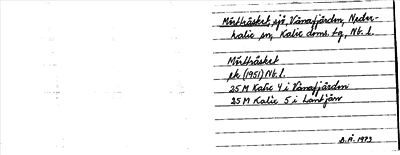 Mörtträsket, sjö, Vånafjärden, Neder-
kalix sn, Kalix doms. tg, Nb. l.
Mörtträsket
ek (1951) Nb. l.
25 M Kalix 4 i Vånafjärden
25 M Kalix 5 i Lomtjärn
1973